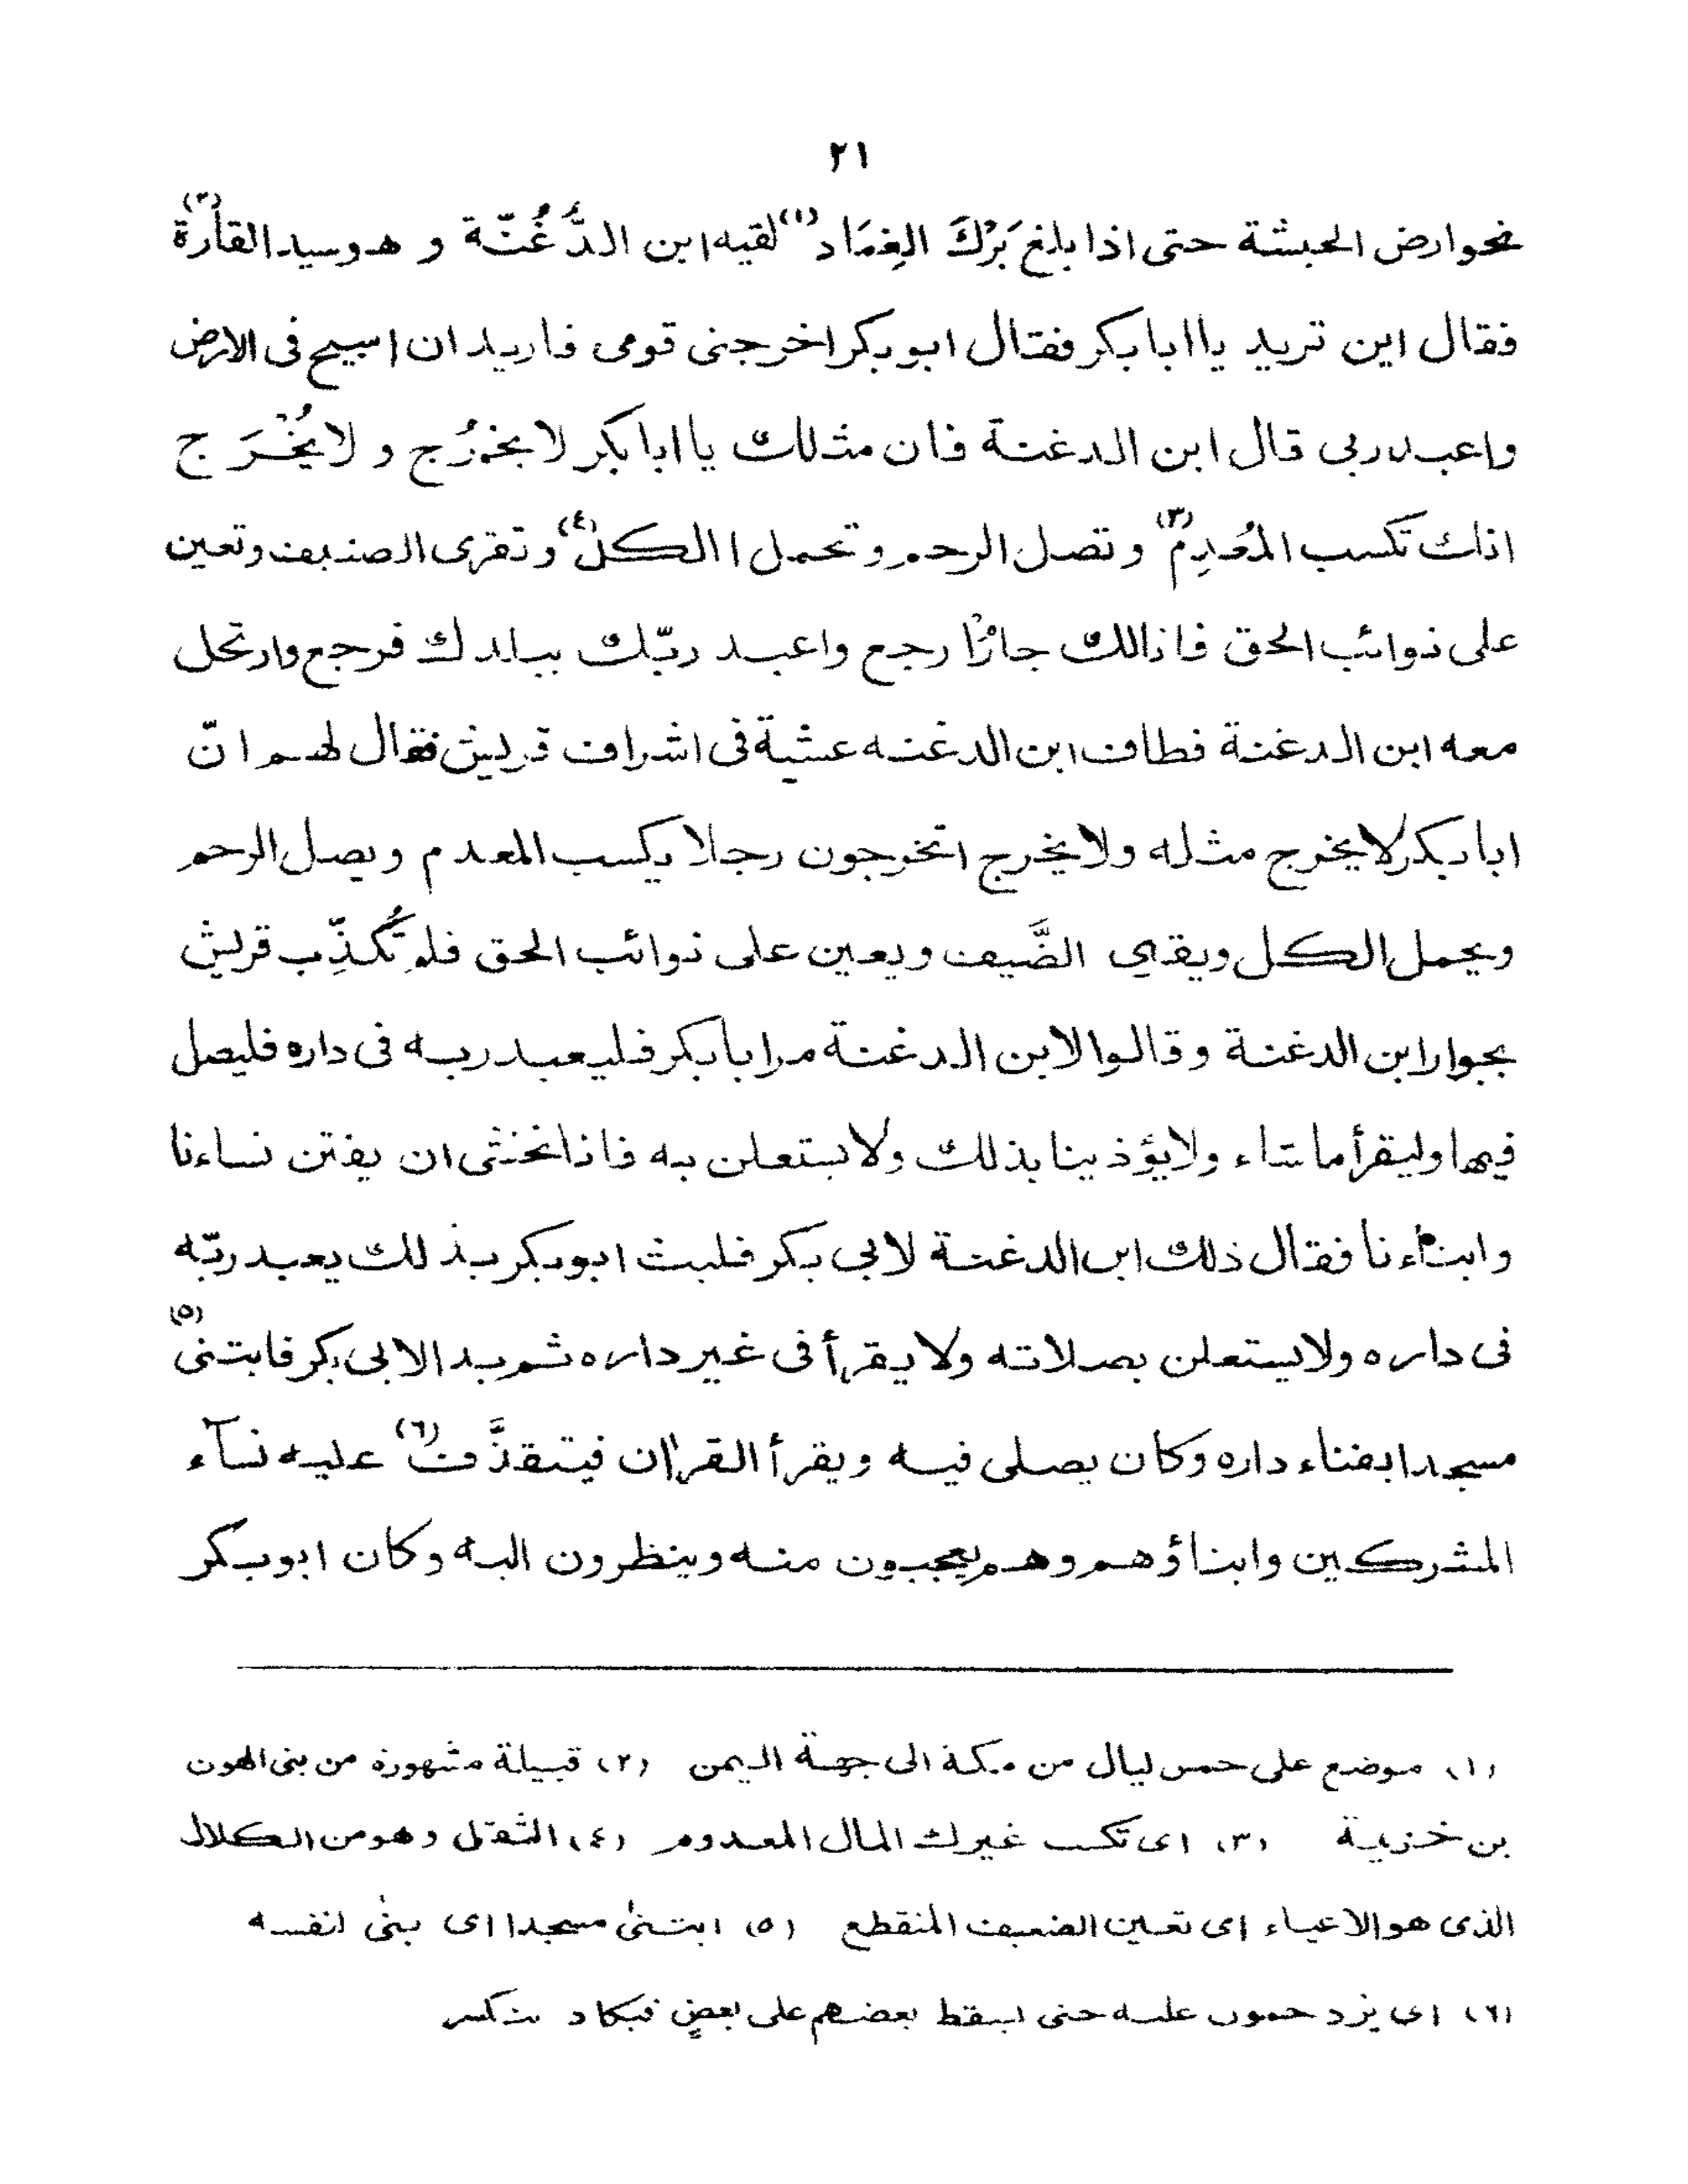 ٢١
نحوارض الحبشة حتى اذا بلغ بَرْكَ الغِمَاد (١) لقيه ابن الدُّغُنّة و هو سيد القارة (٢)
فقال اين تريد يا ابا بكر فقال ابو بكر اخرجنى قومى فاريد ان اسيح فى الارض
واعبد ربى قال ابن الدغنة فان مثلك يا ابا بكر لا يخرُج و لا يُخْرَج
انك تكسب المُعدِم (٣) و تصل الرحم و تحمل االكل (٤) و تقرى الضيف وتعين
على نوائب الحق فانالك جارٌ ارجع واعبد ربّك ببلدك فرجع وارتحل
معه ابن الدغنة فطاف ابن الدغنه عشية فى اشراف قريش فقال لهم انّ
ابا بكر لا يخرج مثله ولا يخرج اتخرجون رجلا يكسب المعدم ويصل الرحم
ويحمل الكل ويقري الضَّيف ويعين على نوائب الحق فلم تُكذِّب قريش
بجوار ابن الدغنة وقالوا لابن الدغنة مر ابا بكر فليعبد ربه فى داره فليصل
فيها وليقرأ ما شاء ولا يؤذينا بذلك ولا يستعلن به فانا نخشى ان يفتن نساءنا
وابناءنا فقال ذلك ابن الدغنة لابي بكر فلبث ابو بكر بذلك يعبد ربّه
فى داره ولا يستعلن بصلاته ولا يقرأ فى غير داره ثم بدا لابى بكر فابتنى (٥)
مسجدا بفناء داره وكان يصلى فيه ويقرأ القران فيتقذَّف (٦) عليه نسآء
المشركين وابناؤهم وهم يعجبون منه وينظرون اليه وكان ابو بكر
(١) موضع على خمس ليال من مكة الى جهة اليمن (٢) قبيلة مشهورة من بنى الهون
بن خزيمة (٣) اى تكسب غيرك المال المعدوم (٤) الثقل وهو من الكلال
الذى هو الاعياء اى تعين الضعيف المنقطع (٥) ابتنى مسجدا اى بنى لنفسه
(٦) اى يزدحمون عليه حتى ليسقط بعضهم على بعضٍ فيكاد ينكسر